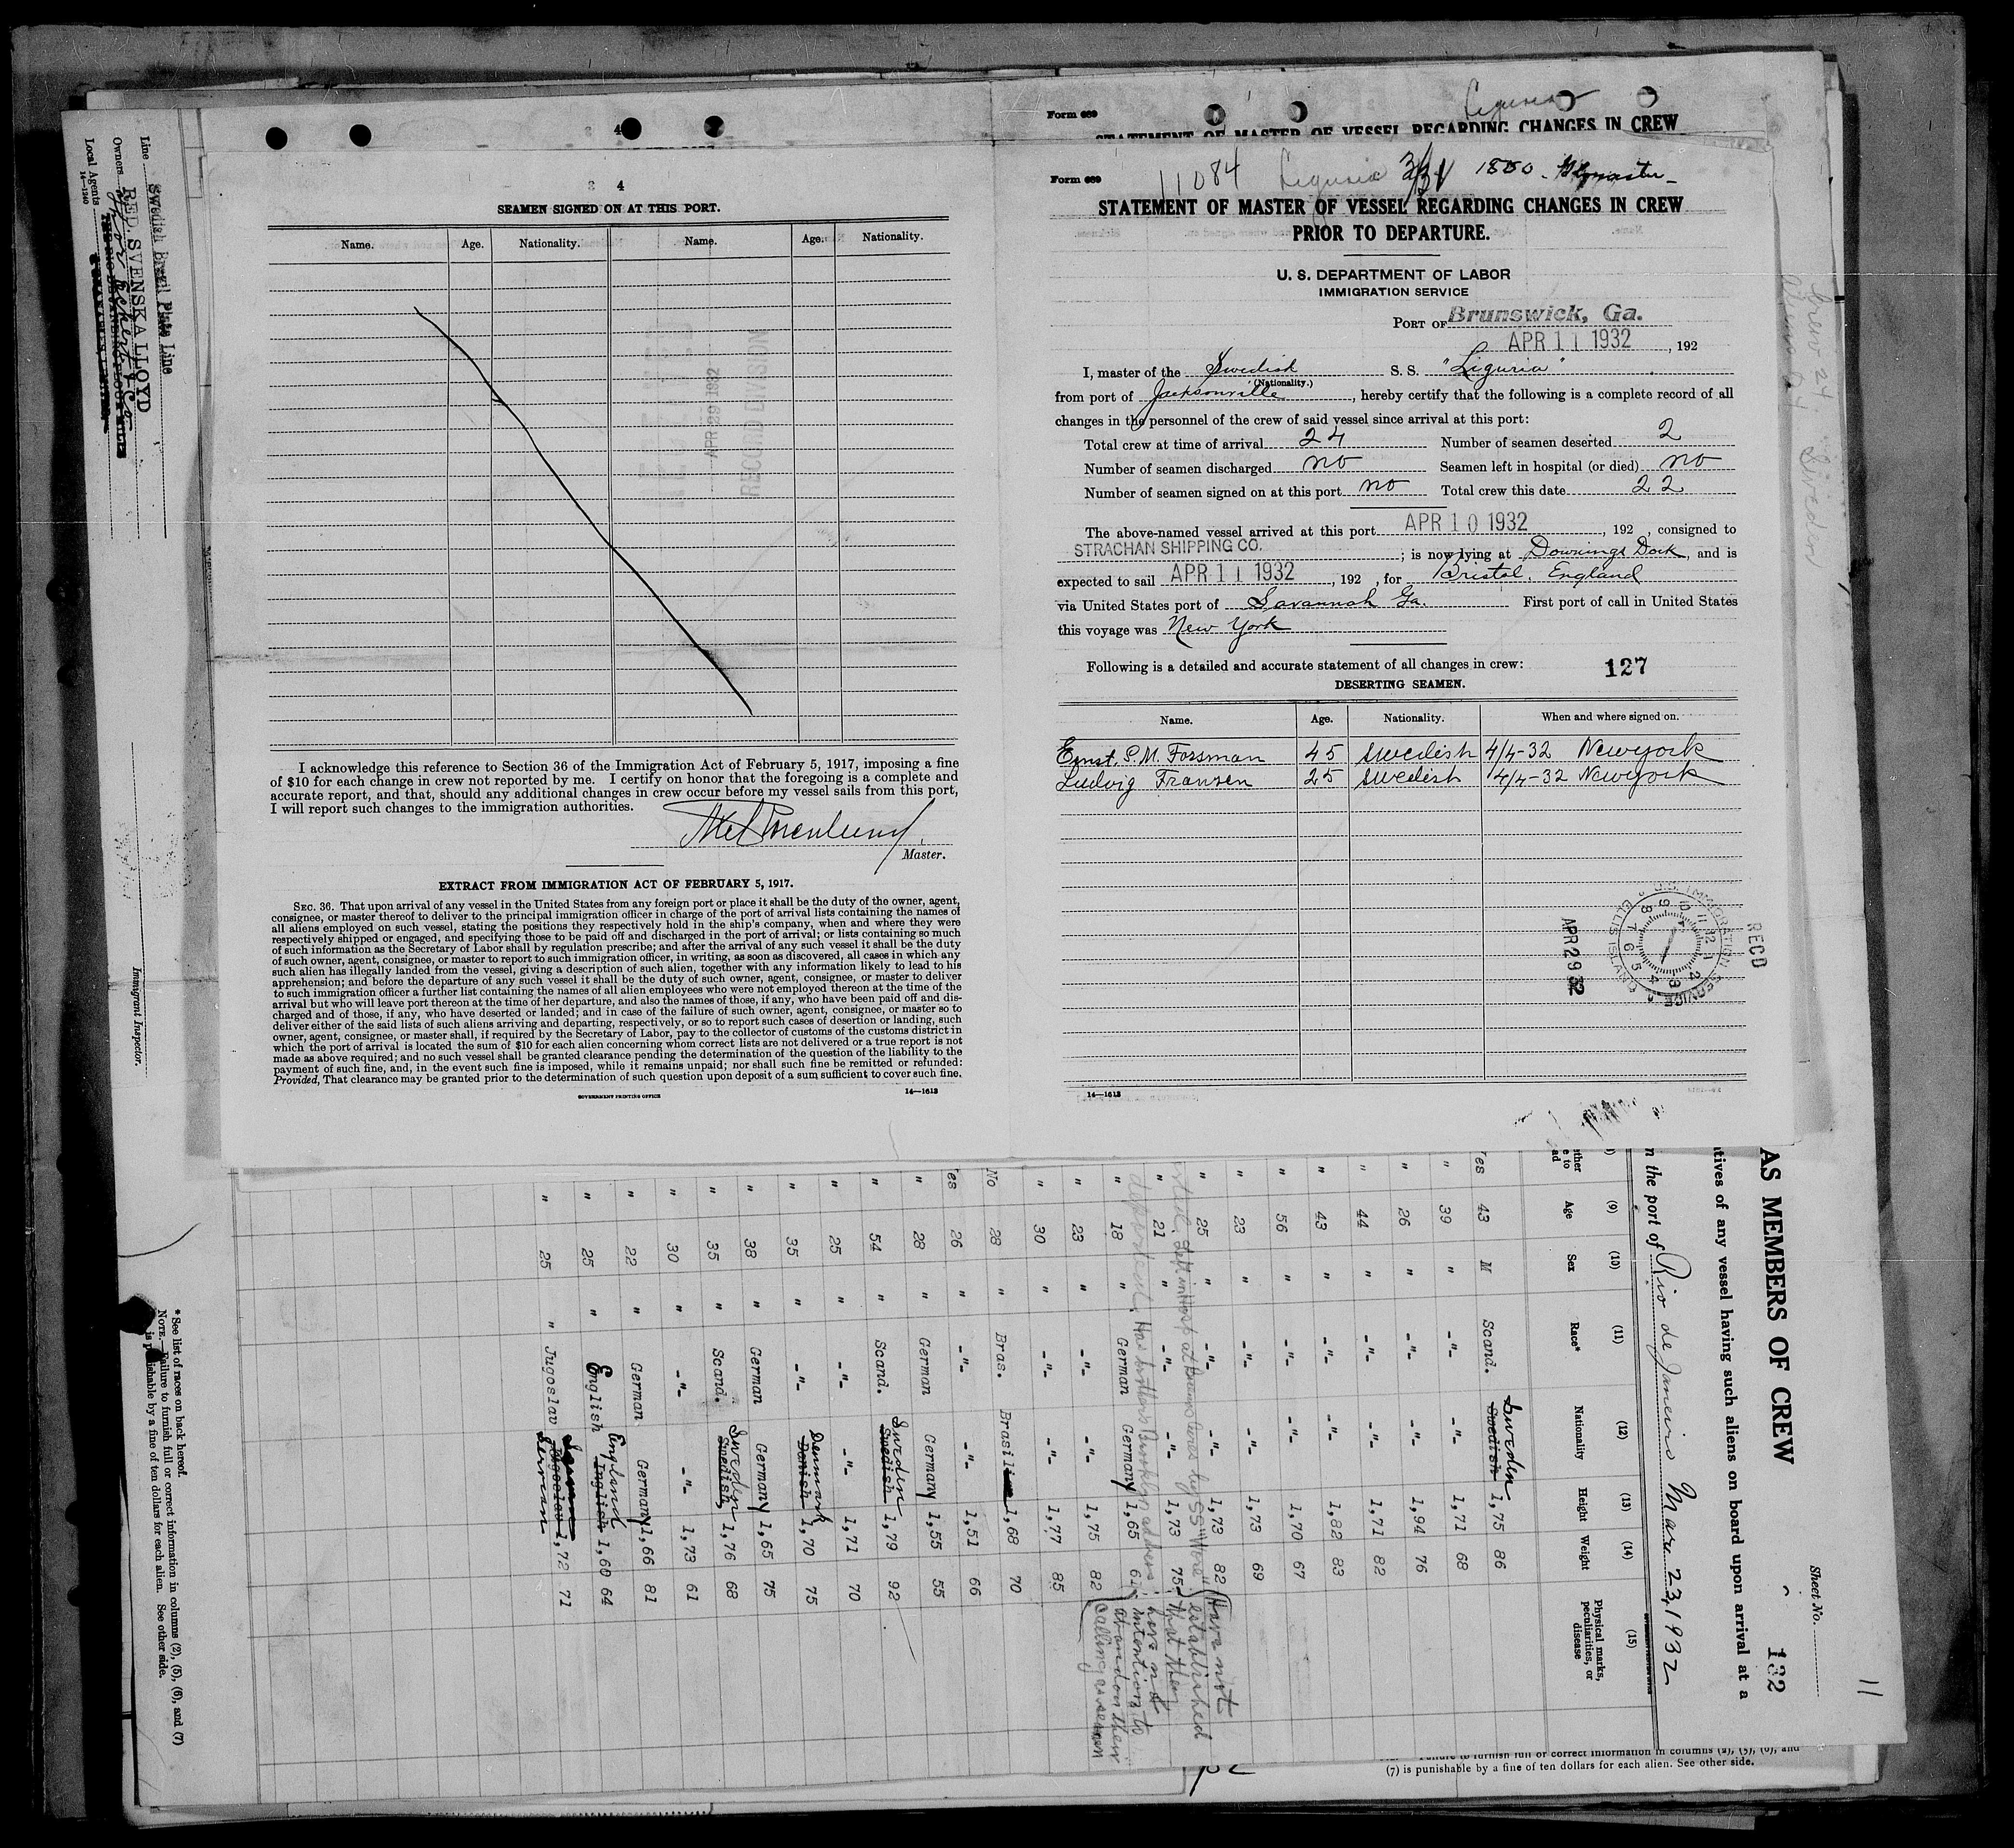 Form 689
STATEMENT OF MASTER OF VESSEL REGARDING CHANGES IN CREW
Liguria
4
SEAMEN SIGNED ON AT THIS PORT.
Name. Age. Nationality. Name. Age. Nationality.
APR 29 1932
RECORD DIVISION
I acknowledge this reference to Section 36 of the Immigration Act of February 5, 1917, imposing a fine
of $10 for each change in crew not reported by me. I certify on honor that the foregoing is a complete and
accurate report, and that, should any additional changes in crew occur before my vessel sails from this port,
I will report such changes to the immigration authorities.
Master.
EXTRACT FROM IMMIGRATION ACT OF FEBRUARY 5, 1917.
SEC. 36. That upon arrival of any vessel in the United States from any foreign port or place it shall be the duty of the owner, agent,
consignee, or master thereof to deliver to the principal immigration officer in charge of the port of arrival lists containing the names of
all aliens employed on such vessel, stating the positions they respectively hold in the ship's company, when and where they were
respectively shipped or engaged, and specifying those to be paid off and discharged in the port of arrival; or lists containing so much
of such information as the Secretary of Labor shall by regulation prescribe; and after the arrival of any such vessel it shall be the duty
of such owner, agent, consignee, or master to report to such immigration officer, in writing, as soon as discovered, all cases in which any
such alien has illegally landed from the vessel, giving a description of such alien, together with any information likely to lead to his
apprehension; and before the departure of any such vessel it shall be the duty of such owner, agent, consignee, or master to deliver
to such immigration officer a further list containing the names of all alien employees who were not employed thereon at the time of the
arrival but who will leave port thereon at the time of her departure, and also the names of those, if any, who have been paid off and dis-
charged and of those, if any, who have deserted or landed; and in case of the failure of such owner, agent, consignee, or master so to
deliver either of the said lists of such aliens arriving and departing, respectively, or so to report such cases of desertion or landing, such
owner, agent, consignee, or master shall, if required by the Secretary of Labor, pay to the collector of customs of the customs district in
which the port of arrival is located the sum of $10 for each alien concerning whom correct lists are not delivered or a true report is not
made as above required; and no such vessel shall be granted clearance pending the determination of the question of the liability to the
payment of such fine, and, in the event such fine is imposed, while it remains unpaid; nor shall such fine be remitted or refunded:
Provided, That clearance may be granted prior to the determination of such question upon deposit of a sum sufficient to cover such fine.
GOVERNMENT PRINTING OFFICE
14—1613
Form 689 11084 Liguria
STATEMENT OF MASTER OF VESSEL REGARDING CHANGES IN CREW
PRIOR TO DEPARTURE.
U. S. DEPARTMENT OF LABOR
IMMIGRATION SERVICE
PORT OF Brunswick, Ga.
APR 11 1932, 192
I, master of the Swedish S. S. "Liguria"
(Nationality.)
from port of Jacksonville, hereby certify that the following is a complete record of all
changes in the personnel of the crew of said vessel since arrival at this port:
Total crew at time of arrival 24 Number of seamen deserted 2
Number of seamen discharged no Seamen left in hospital (or died) no
Number of seamen signed on at this port no Total crew this date 22
The above-named vessel arrived at this port APR 10 1932, 192 , consigned to
STRACHAN SHIPPING CO. ; is now lying at Downings Dock, and is
expected to sail APR 11 1932, 192 , for Bristol, England
via United States port of Savannah Ga. First port of call in United States
this voyage was New York
Following is a detailed and accurate statement of all changes in crew: 127
DESERTING SEAMEN.
Name. Age. Nationality. When and where signed on.
Ernst P.M. Forsman 45 Swedish 4/4-32 Newyork
Ludvig Franzen 25 Swedish 4/4-32 Newyork
APR 29 32
U.S. IMMIGRATION SERVICE ELLIS ISLAND
RECD
14—1613
Line Swedish Brazil Plate Line
Owners RED. SVENSKA LLOYD
Local Agents
14—1240
Immigrant Inspector.
* See list of races on back hereof.
NOTE.—Failure to furnish full or correct information in columns (2), (5), (6), and (7)
is punishable by a fine of ten dollars for each alien. See other side.
Sheet No.
11
132
AS MEMBERS OF CREW
tives of any vessel having such aliens on board upon arrival at a
m the port of Rio de Janeiro Mar. 23, 1932
(9) (10) (11) (12) (13) (14) (15)
Age Sex Race* Nationality Height Weight Physical marks, peculiarities, or disease
43 M Scand. Sweden Swedish 1,75 86
" 39 " -"- -"- 1,71 68
" 26 " -"- -"- 1,94 76
" 44 " -"- -"- 1,71 82
" 43 " -"- -"- 1,82 83
" 56 " -"- -"- 1,70 67
" 23 " -"- -"- 1,73 69
" 25 " -"- -"- 1,73 82
" 21 " -"- -"- 1,73 75
" 18 " German Germany 1,65 61
" 23 " -"- -"- 1,75 82
" 30 " -"- -"- 1,77 85
No 28 " Bras. Brasil 1,68 70
Yes 26 " -"- -"- 1,51 66
" 28 " German Germany 1,55 55
" 54 " Scand. Sweden Swedish 1,79 92
" 25 " -"- -"- 1,71 70
" 35 " -"- Denmark Danish 1,70 75
" 38 " German Germany 1,65 75
" 35 " Scand. Sweden Swedish 1,76 68
" 30 " -"- -"- 1,73 61
" 22 " German Germany 1,66 81
" 25 " English England English 1,60 64
" 25 " Jugoslav German 1,72 71
Have not
established
that they
have not
intention to
abandon their
calling as seamen
(7) is punishable by a fine of ten dollars for each alien. See other side.